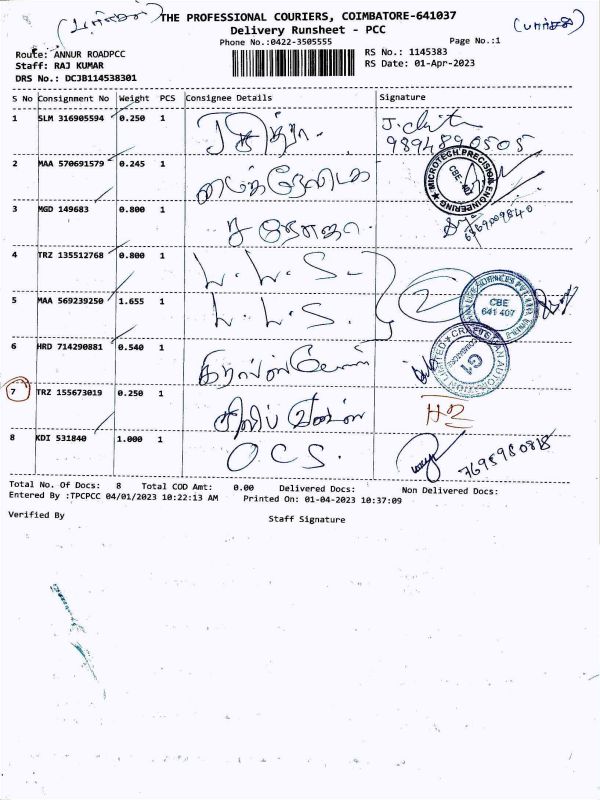 THE PROFESSIONAL COURIERS, COIMBATORE-641037
Delivery Runsheet - PCC
Phone No.:0422-3505555
Page No.:1
Route: ANNUR ROADPCC
Staff: RAJ KUMAR
DRS No.: DCJB114538301
RS No.: 1145383
RS Date: 01-Apr-2023
S No Consignment No Weight PCS Consignee Details Signature
1 SLM 316905594 0.250 1 J சித்ரா. J. Chitra
9894890505
2 MAA 570691579 0.245 1
MICROTECH PRECISION ENGINEERING
CBE - 407
3 MGD 149683 0.800 1
4 TRZ 135512768 0.800 1 L. L. S.
5 MAA 569239250 1.655 1 L. L. S.
CBE
641 407
6 HRD 714290881 0.540 1
G1
7 TRZ 155673019 0.250 1
8 KDI 531840 1.000 1 O.C S.
Total No. Of Docs: 8 Total COD Amt: 0.00 Delivered Docs: Non Delivered Docs:
Entered By :TPCPCC 04/01/2023 10:22:13 AM Printed On: 01-04-2023 10:37:09
Verified By Staff Signature